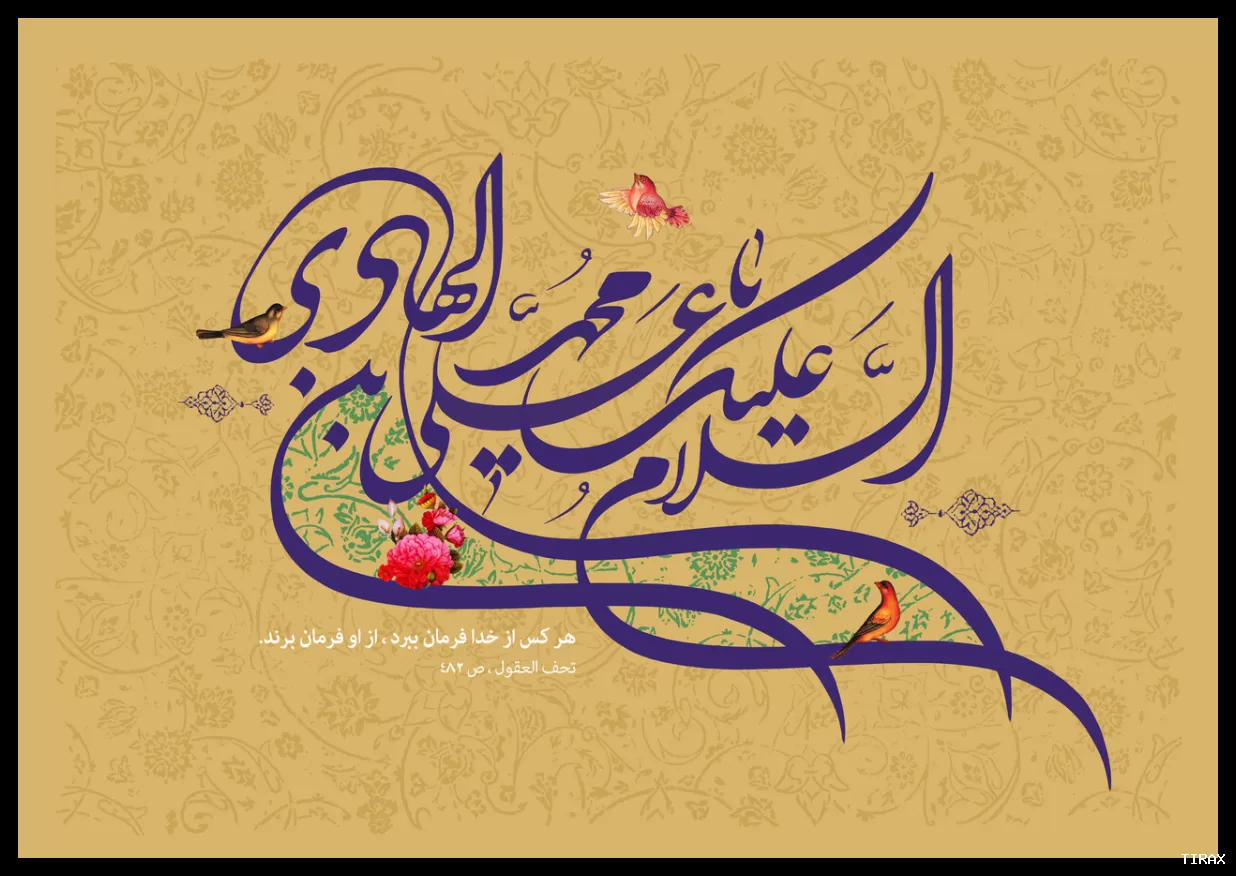 السلام علیک یا علی بن محمد الهادی
هر کس از خدا فرمان ببرد ، از او فرمان برند.
تحف العقول ، ص ۴۸۲
TIRAX